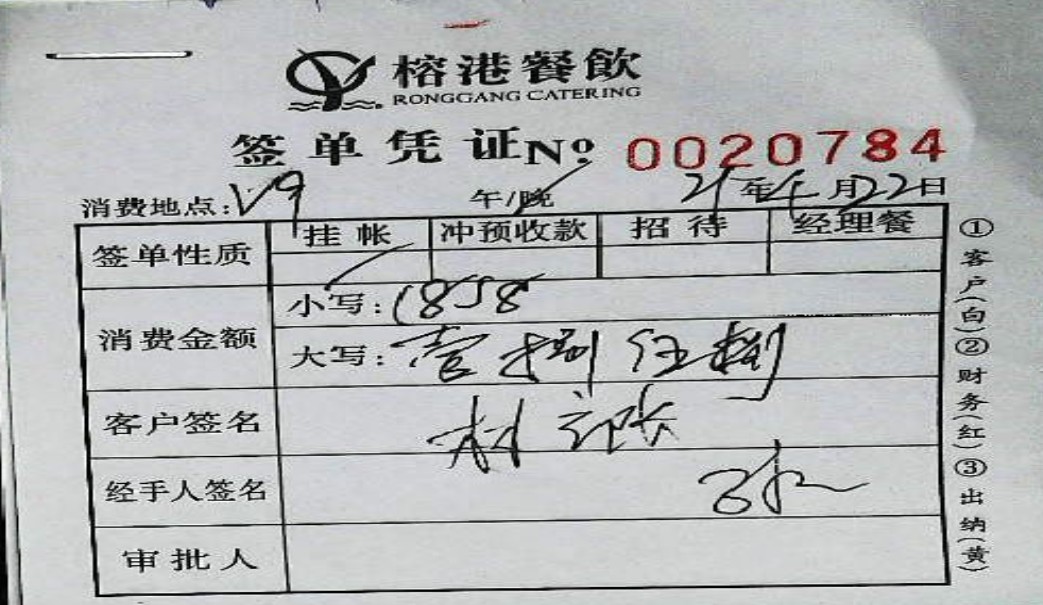 榕港餐飲
RONGGANG CATERING
签单凭证 No 0020784
消费地点:V9 午/晚 21年4月22日
签单性质 挂帐 冲预收款 招待 经理餐
消费金额 小写:1858
大写:壹捌伍捌
客户签名
经手人签名
审批人
①客户(白)②财务(红)③出纳(黄)